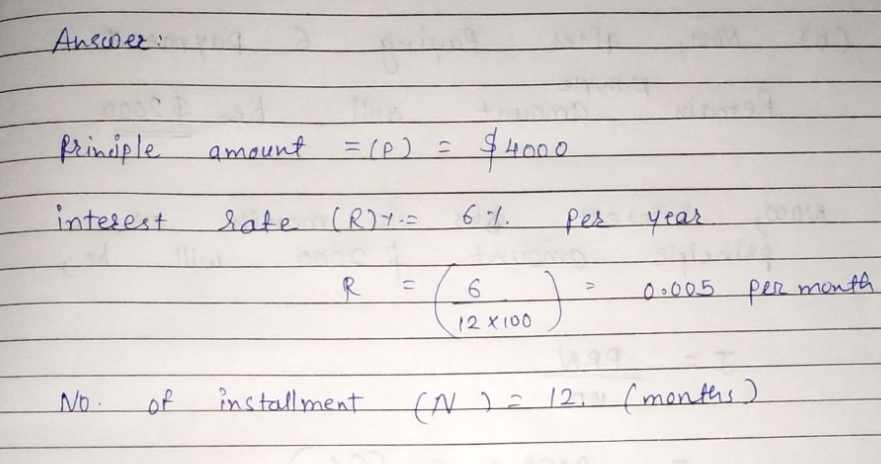 Answer:
Principle amount = (P) = $4000
interest rate (R)%= 6%. per year
R = (6 / 12 x 100) = 0.005 per month
No. of installment (N) = 12. (months)